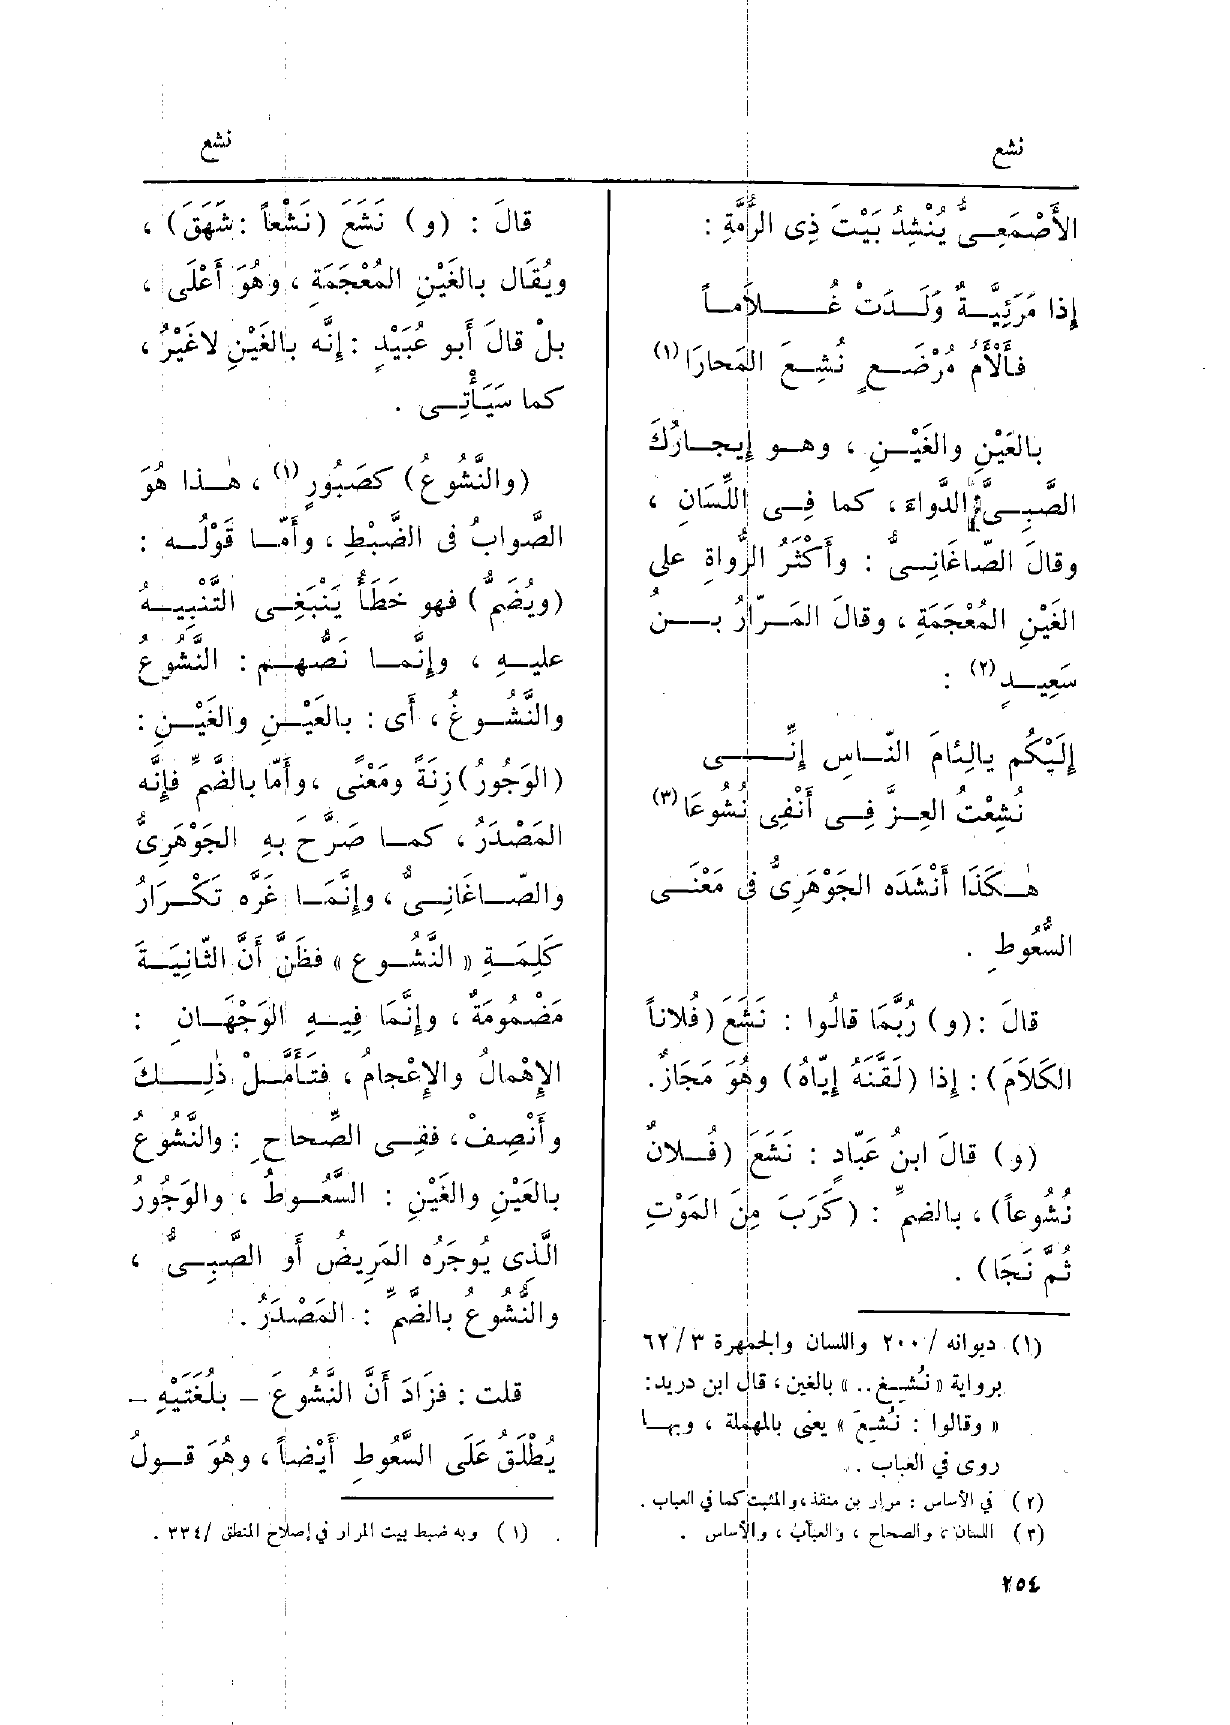 نشع
نشع
الأَصْمَعِىُّ يُنْشِدُ بَيْتَ ذِى الرُّمَّةِ :
إذا مَرَئِيَّةٌ وَلَدَتْ غُلَاماً
فأَلأَمُ مُرْضَعٍ نُشِعَ المَحارَا (١)
بالعَيْنِ والغَيْنِ ، وهو إيجارُكَ
الصَّبِىَّ الدَّواءَ ، كما فِى اللِّسَانِ ،
وقالَ الصّاغَانِىُّ : وأَكْثَرُ الرُّواةِ على
الغَيْنِ المُعْجَمَةِ ، وقالَ المَرّارُ بنُ
سَعِيدٍ (٢) :
إِلَيْكُم يالِئامَ النّاسِ إِنِّى
نُشِعْتُ العِزَّ فِى أَنْفِى نُشُوعَا (٣)
هٰكَذَا أَنْشَدَه الجَوْهَرِىُّ فى مَعْنَى
السَّعُوطِ .
قالَ : (و) رُبَّمَا قالُوا : نَشَعَ (فُلاناً
الكَلَامَ) : إذا (لَقَّنَهُ إيّاهُ) وهُوَ مَجَازٌ.
(و) قالَ ابنُ عَبّادٍ : نَشَعَ (فُلانٌ
نُشُوعاً) ، بالضمِّ : (كَرَبَ مِنَ المَوْتِ
ثُمَّ نَجَا) .
(١) ديوانه / ٢٠٠ واللسان والجمهرة ٣ / ٦٢
برواية « نُشِغَ .. » بالغين ، قال ابن دريد :
« وقالوا : نُشِعَ » يعنى بالمهملة ، وبها
روى في العباب .
(٢) في الأساس : مرار بن منقذ ، والمثبت كما في العباب .
(٣) اللسان ، والصحاح ، والعباب ، والأساس .
قالَ : (و) نَشَعَ (نَشْعاً : شَهَقَ) ،
ويُقَال بالغَيْنِ المُعْجَمَةِ ، وهُوَ أَعْلَى ،
بلْ قالَ أبو عُبَيْدٍ : إنَّه بالغَيْنِ لاغَيْرُ ،
كما سَيَأْتِى .
(والنَّشُوعُ) كصَبُورٍ (١) ، هٰذا هُوَ
الصَّوابُ فى الضَّبْطِ ، وأَمّا قَوْلُه :
(ويُضَمُّ) فهو خَطَأٌ يَنْبَغِى التَّنْبِيهُ
عليهِ ، وإنَّما نَصُّهم : النَّشُوعُ
والنَّشُوغُ ، أَى : بالعَيْنِ والغَيْنِ :
(الوَجُورُ) زِنَةً ومَعْنًى ، وأَمّا بالضَّمِّ فإِنَّه
المَصْدَرُ ، كما صَرَّحَ بهِ الجَوْهَرِىُّ
والصّاغَانِىُّ ، وإنَّمَا غَرَّه تَكْرَارُ
كَلِمَةِ « النَّشُوع » فظَنَّ أَنَّ الثّانِيَةَ
مَضْمُومَةٌ ، وإنَّمَا فِيهِ الوَجْهَانِ :
الإهْمالُ والإعْجامُ ، فتَأَمَّلْ ذٰلِكَ
وأَنْصِفْ ، ففِى الصِّحاحِ : والنَّشُوعُ
بالعَيْنِ والغَيْنِ : السَّعُوطُ ، والوَجُورُ
الَّذِى يُوجَرُه المَرِيضُ أو الصَّبِىُّ ،
والنُّشُوعُ بالضَّمِّ : المَصْدَرُ .
قلت : فزَادَ أَنَّ النَّشُوعَ - بلُغَتَيْهِ -
يُطْلَقُ عَلَى السَّعُوطِ أَيْضاً ، وهُوَ قولُ
(١) وبه ضبط بيت المرار في إصلاح المنطق / ٣٣٤ .
٢٥٤